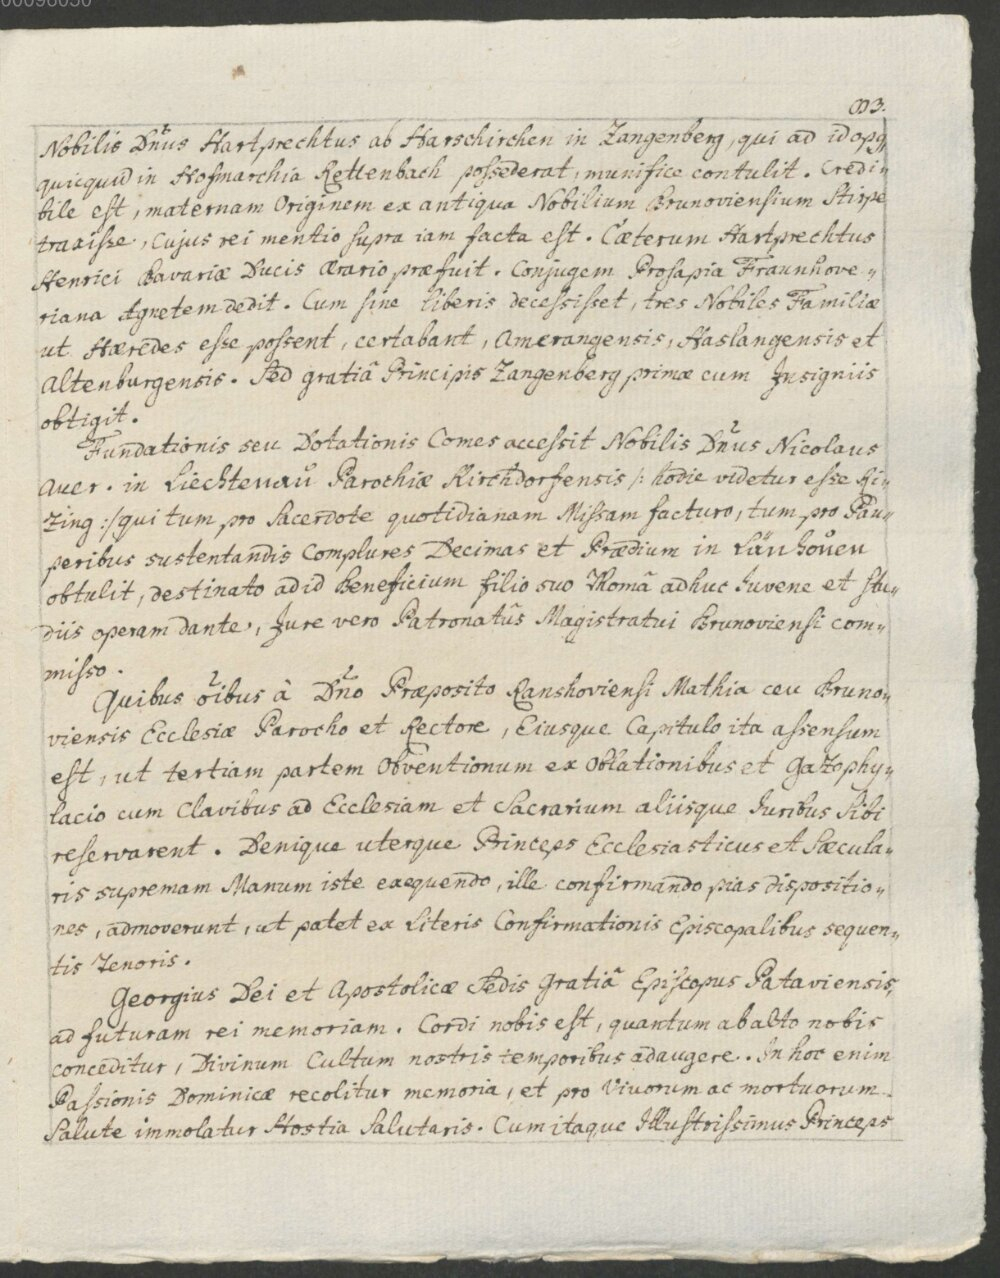 00096030
993.
Nobilis Dn̄us Hartprechtus ab Harschirchen in Zangenberg, qui ad id opq
quicquid in Hofmarchia Rettenbach possederat, munifice contulit. Credi„
bile est, maternam Originem ex antiqua Nobilium Brunoviensium Stirpe
traxisse, Cujus rei mentio supra iam facta est. Cæterum Hartprechtus
Henrici Bavariæ Ducis Ærario præfuit. Conjugem Prosapia Fraunhove„
riana Agnetem dedit. Cum sine liberis decessisset, tres Nobiles Familiæ
ut Hæredes esse possent, certabant, Amerangensis, Haslangensis et
Altenburgensis. Sed gratiâ Principis Zangenberg primæ cum Insigniis
obtigit.
Fundationis seu Dotationis Comes accessit Nobilis Dn̄us Nicolaus
Auer. in Liechtenaŭ Parochiæ Kirchdorfensis /: hodie videtur esse Ri„
Zing :/ qui tum pro Sacerdote quotidianam Missam facturo, tum pro Pau„
peribus sustentandis Complures Decimas et Prædium in Länhoŭen
obtulit, destinato ad id Beneficium filio suo Thomâ adhuc Juvene et stu„
diis operam dante, Jure vero Patronatûs Magistratui Brunoviensi com„
misso.
Quibus ōibus à Dn̄o Præposito Ranshoviensi Mathia ceu Bruno„
viensis Ecclesiæ Parocho et Rectore, Eiusque Capitulo ita assensum
est, ut tertiam partem Obventionum ex Oblationibus et Gazophy„
lacio cum Clavibus ad Ecclesiam et Sacrarium aliisque Juribus Sibi
reservarent. Denique uterque Princeps Ecclesiasticus et Sæcula„
ris supremam Manum iste exequendo, ille confirmando pias dispositio„
nes, admoverunt, ut patet ex Literis Confirmationis Episcopalibus sequen„
tis Tenoris.
Georgius Dei et Apostolicæ Sedis Gratiâ Episcopus Pataviensis,
ad futuram rei memoriam. Cordi nobis est, quantum ab alto nobis
conceditur, Divinum Cultum nostris temporibus adaugere. In hoc enim
Passionis Dominicæ recolitur memoria, et pro Vivorum ac mortuorum
Salute immolatur Hostia Salutaris. Cum itaque Illustrissimus Princeps